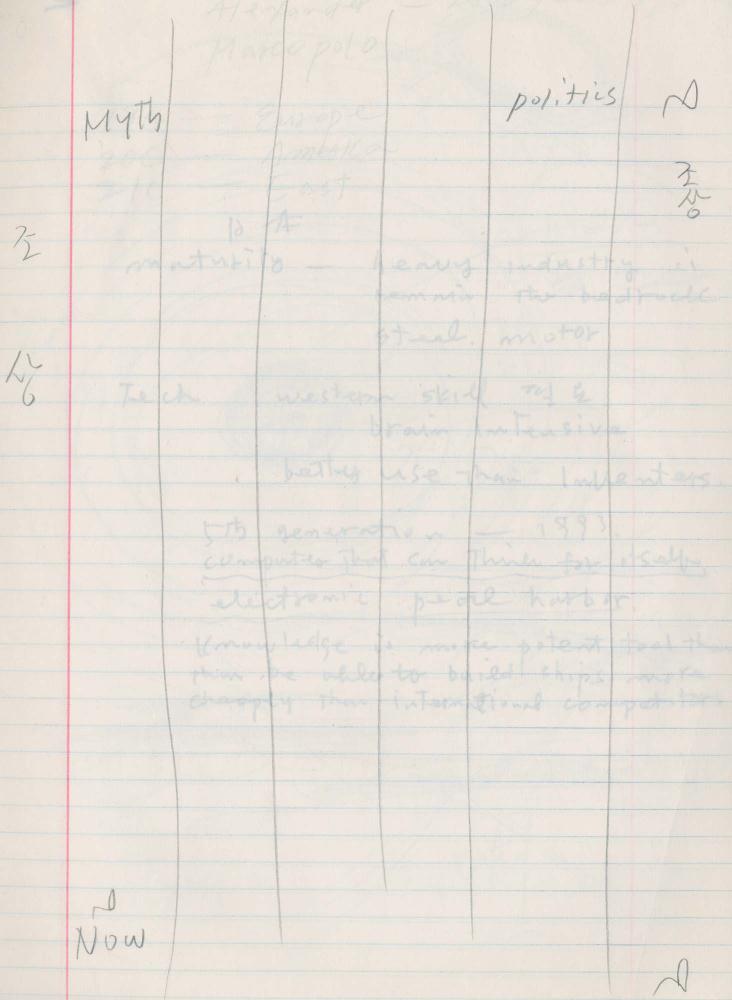 Alexander —
Marco polo
politics
Myth
Europe
America
조
상
East
조
maturity — heavy industry is
remain the bedrock
steel. motor
상
Tech western skill
brain intensive
better use than inventers.
5th generation — 1993.
computer that can think for itself
electronic pearl harbor.
Knowledge is more potent tool
than be able to build ships more
cheaply than international competitors
Now